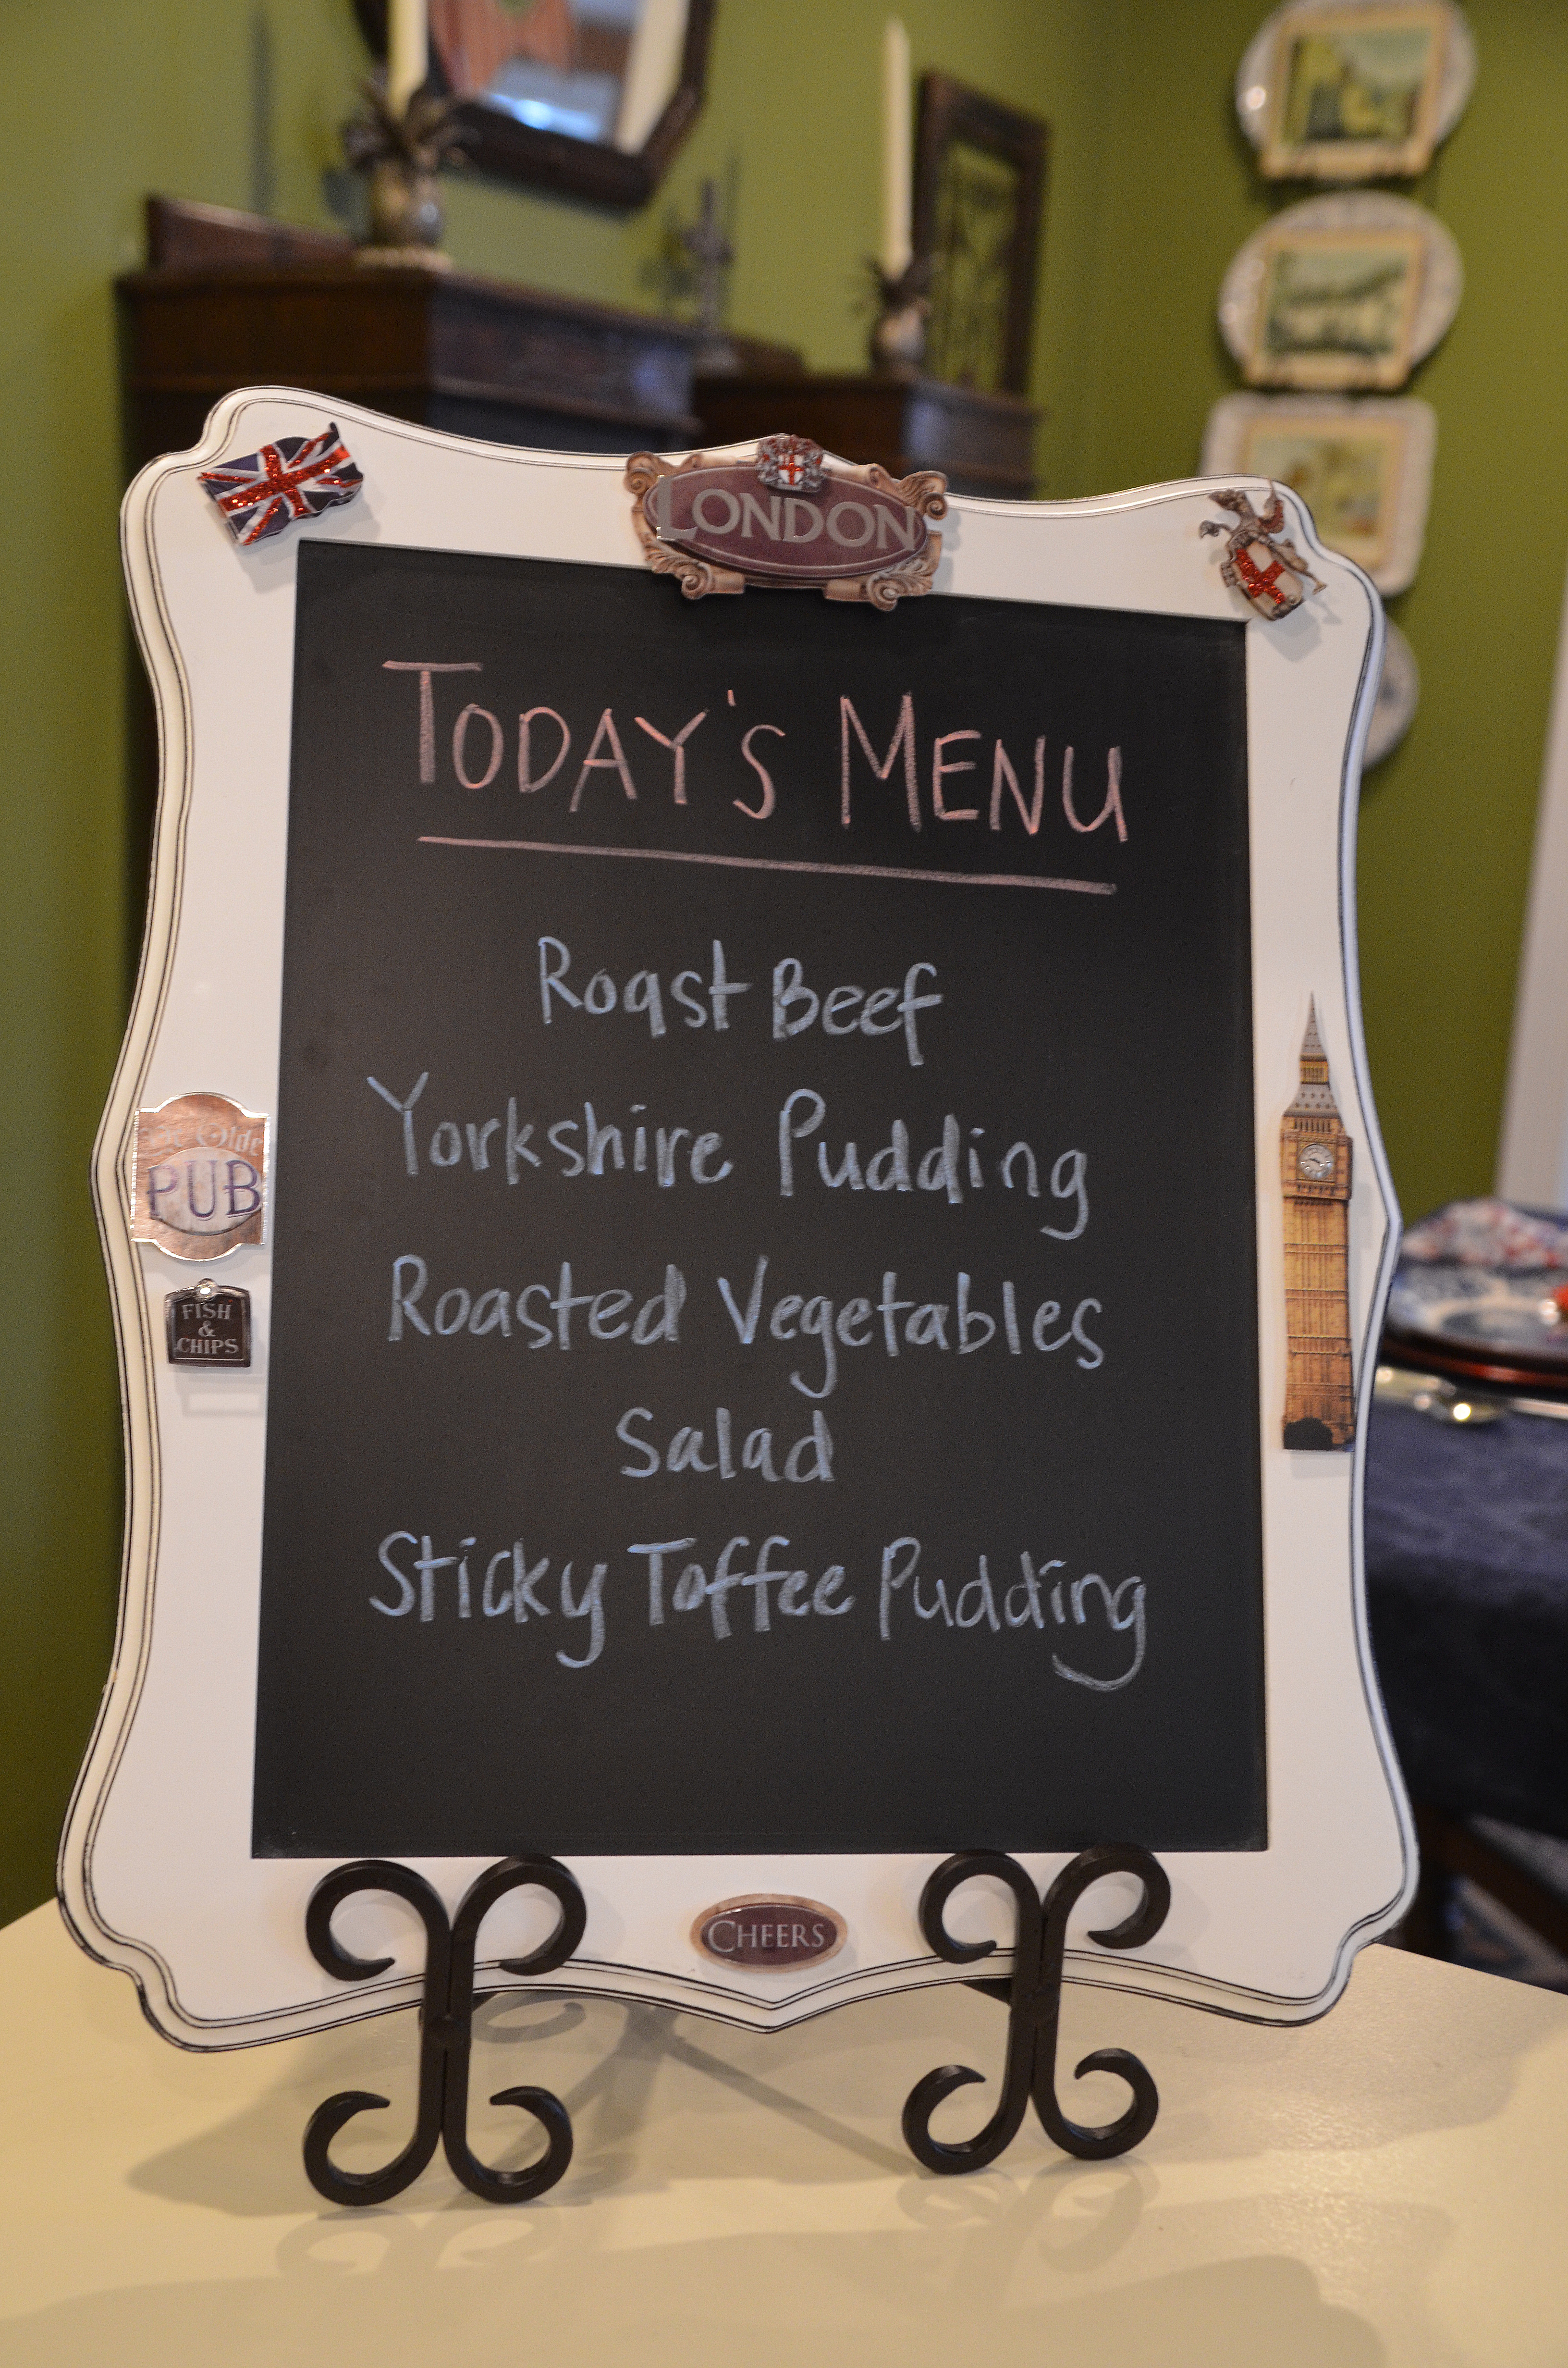 LONDON
TODAY'S MENU
Roast Beef
Yorkshire Pudding
Ye Olde
PUB
Roasted Vegetables
FISH
&
CHIPS
Salad
Sticky Toffee Pudding
CHEERS